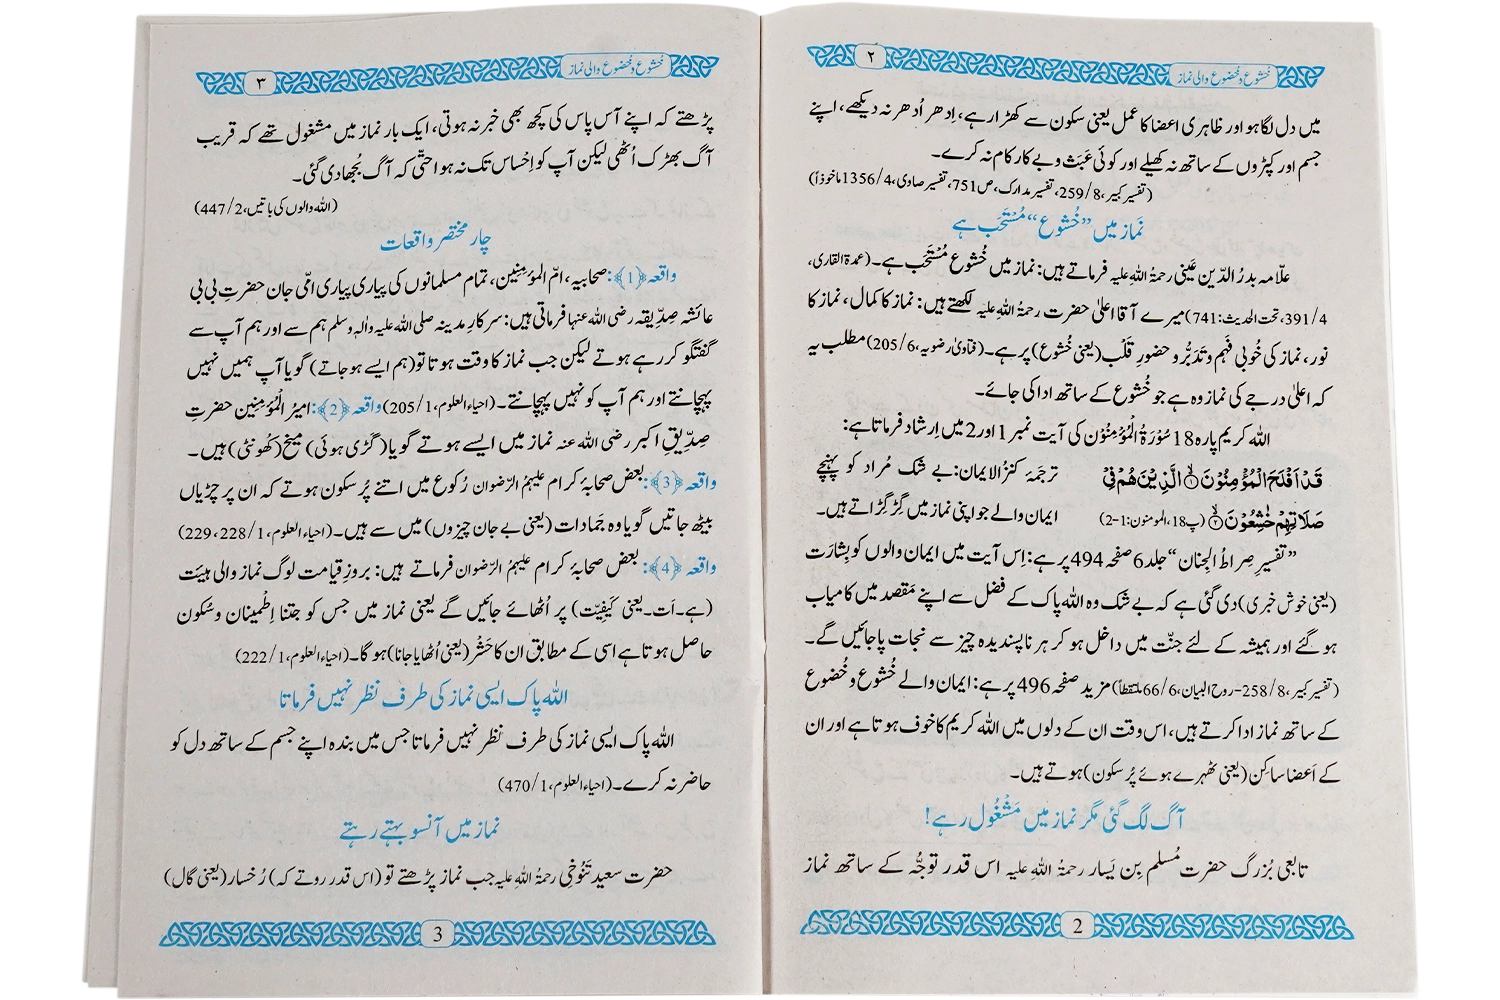 خشوع و خضوع والی نماز
۲
میں دل لگا ہو اور ظاہری اعضا کا عمل یعنی سکون سے کھڑا رہے، اِدھر اُدھر نہ دیکھے، اپنے
جسم اور کپڑوں کے ساتھ نہ کھیلے اور کوئی عَبَث و بے کار کام نہ کرے۔
(تفسیر کبیر، 259/8، تفسیر مدارک، ص751، تفسیر صاوی، 1356/4 ماخوذاً)
نَماز میں ”خُشوع“ مُسْتَحَب ہے
علّامہ بدرُ الدّین عَینی رحمۃُ اللہِ علیہ فرماتے ہیں: نماز میں خُشوع مُسْتَحَب ہے۔ (عمدۃ القاری،
391/4، تحت الحدیث: 741) میرے آقا اعلیٰ حضرت رحمۃُ اللہِ علیہ لکھتے ہیں: نماز کا کمال، نماز کا
نور، نماز کی خُوبی فَہم و تَدَبُّر و حضورِ قَلْب (یعنی خُشوع) پر ہے۔ (فتاویٰ رضویہ، 205/6) مطلب یہ
کہ اعلیٰ درجے کی نماز وہ ہے جو خُشوع کے ساتھ ادا کی جائے۔
اللہ کریم پارہ 18 سُوْرَۃُ الْمُؤْمِنُوْن کی آیت نمبر 1 اور 2 میں اِرشاد فرماتا ہے:
قَدْ اَفْلَحَ الْمُؤْمِنُوْنَۙ۝۱ الَّذِیْنَ هُمْ فِیْ
ترجَمۂ کنزُ الایمان: بے شک مُراد کو پہنچے
صَلَاتِهِمْ خٰشِعُوْنَۙ۝۲ (پ18، المومنون: 1-2)
ایمان والے جو اپنی نماز میں گِڑگِڑاتے ہیں۔
”تفسیرِ صِراطُ الجِنان“ جلد 6 صفحہ 494 پر ہے: اِس آیت میں ایمان والوں کو بِشارَت
(یعنی خوش خبری) دی گئی ہے کہ بے شک وہ اللہ پاک کے فضل سے اپنے مَقصد میں کامیاب
ہو گئے اور ہمیشہ کے لئے جنّت میں داخل ہو کر ہر ناپسندیدہ چیز سے نجات پا جائیں گے۔
(تفسیر کبیر، 258/8-روح البیان، 66/6 ملتقطاً) مزید صفحہ 496 پر ہے: ایمان والے خُشوع و خُضوع
کے ساتھ نماز ادا کرتے ہیں، اس وقت ان کے دلوں میں اللہ کریم کا خوف ہوتا ہے اور ان
کے اَعضا ساکِن (یعنی ٹھہرے ہوئے پُر سکون) ہوتے ہیں۔
آگ لگ گئی مگر نماز میں مَشْغُول رہے!
تابعی بُزرگ حضرت مُسلم بِن یَسار رحمۃُ اللہِ علیہ اس قدر توجُّہ کے ساتھ نماز
2
خُشوع و خُضوع والی نماز
۳
پڑھتے کہ اپنے آس پاس کی کچھ بھی خبر نہ ہوتی، ایک بار نماز میں مشغول تھے کہ قریب
آگ بھڑک اُٹھی لیکن آپ کو اِحْساس تک نہ ہوا حتّٰی کہ آگ بُجھا دی گئی۔
(اللہ والوں کی باتیں، 447/2)
چار مختصر واقعات
واقعہ ﴿1﴾: صحابیہ، امّ المؤمنین، تمام مسلمانوں کی پیاری پیاری امّی جان حضرتِ بی بی
عائشہ صِدِّیقہ رضی اللہ عنہا فرماتی ہیں: سرکارِ مدینہ صلی اللہ علیہ واٰلہٖ وسلم ہم سے اور ہم آپ سے
گفتگو کر رہے ہوتے لیکن جب نماز کا وقت ہوتا تو (ہم ایسے ہو جاتے) گویا آپ ہمیں نہیں
پہچانتے اور ہم آپ کو نہیں پہچانتے۔ (احیاء العلوم، 205/1) واقعہ ﴿2﴾: امیرُ الْمُؤمِنین حضرتِ
صِدِّیقِ اکبر رضی اللہ عنہ نماز میں ایسے ہوتے گویا (گَڑی ہوئی) میخ (کُھونٹی) ہیں۔
واقعہ ﴿3﴾: بعض صحابۂ کرام علیہمُ الرّضوان رُکوع میں اتنے پُر سکون ہوتے کہ ان پر چڑیاں
بیٹھ جاتیں گویا وہ جَمادات (یعنی بے جان چیزوں) میں سے ہیں۔ (احیاء العلوم، 228/1، 229)
واقعہ ﴿4﴾: بعض صحابۂ کرام علیہمُ الرّضوان فرماتے ہیں: بروزِ قیامت لوگ نماز والی ہیئت
(ہے۔اَت۔یعنی کَیفِیّت) پر اُٹھائے جائیں گے یعنی نماز میں جس کو جتنا اِطْمینان و سُکون
حاصل ہوتا ہے اسی کے مطابق ان کا حَشْر (یعنی اُٹھایا جانا) ہو گا۔ (احیاء العلوم، 222/1)
اللہ پاک ایسی نماز کی طرف نظر نہیں فرماتا
اللہ پاک ایسی نماز کی طرف نظر نہیں فرماتا جس میں بندہ اپنے جسم کے ساتھ دل کو
حاضر نہ کرے۔ (احیاء العلوم، 470/1)
نماز میں آنسو بہتے رہتے
حضرت سعید تَنُوخِی رحمۃُ اللہِ علیہ جب نماز پڑھتے تو (اس قدر روتے کہ) رُخسار (یعنی گال)
3